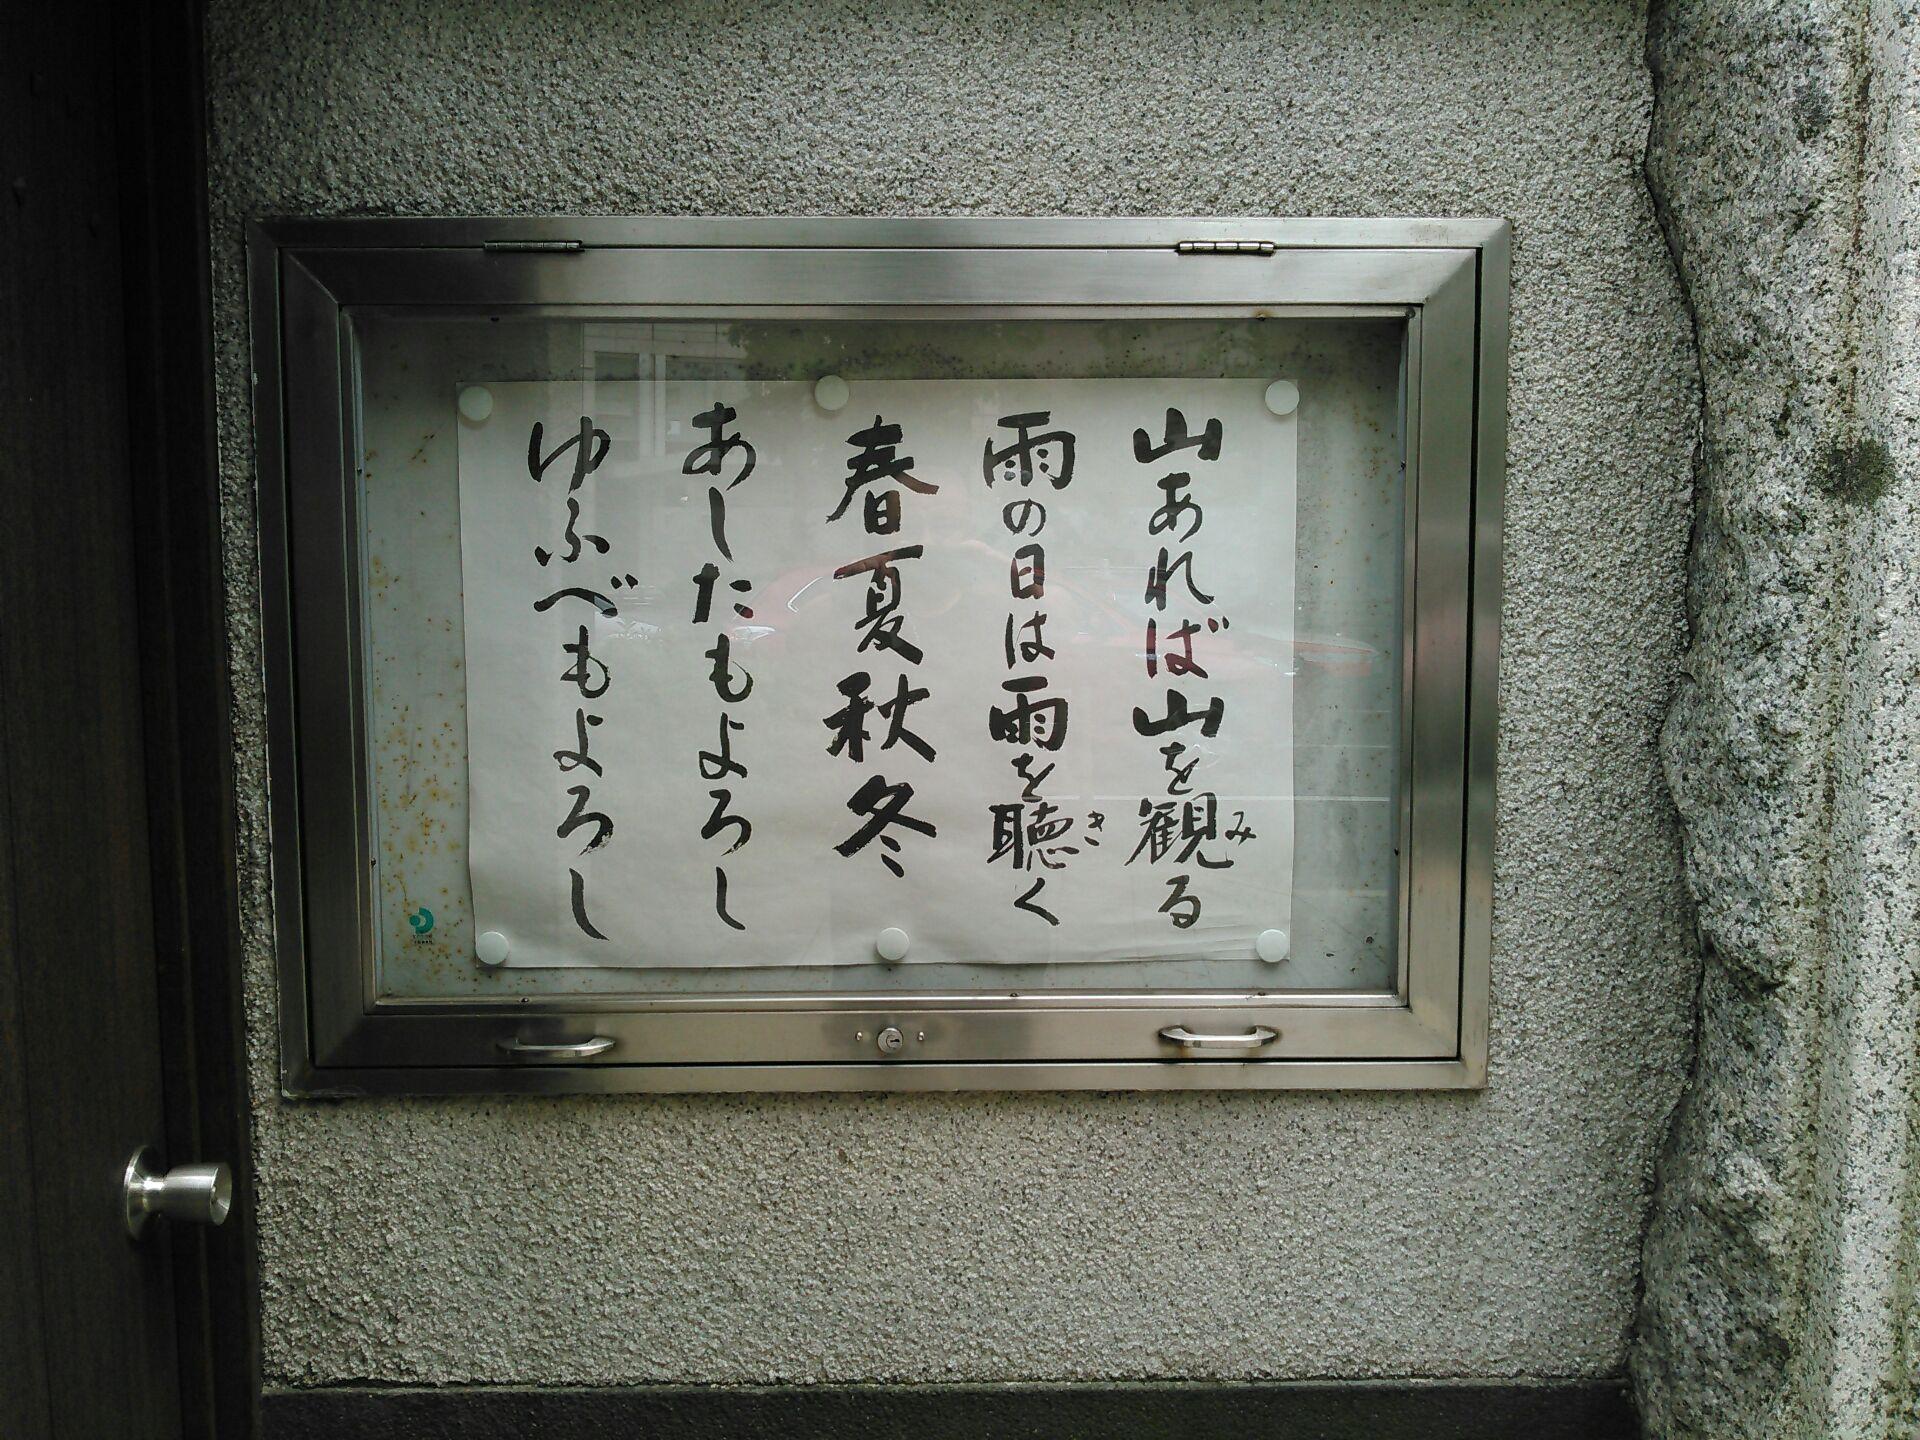 山あれば山を観る
み
雨の日は雨を聴く
き
春夏秋冬
あしたもよろし
ゆふべもよろし